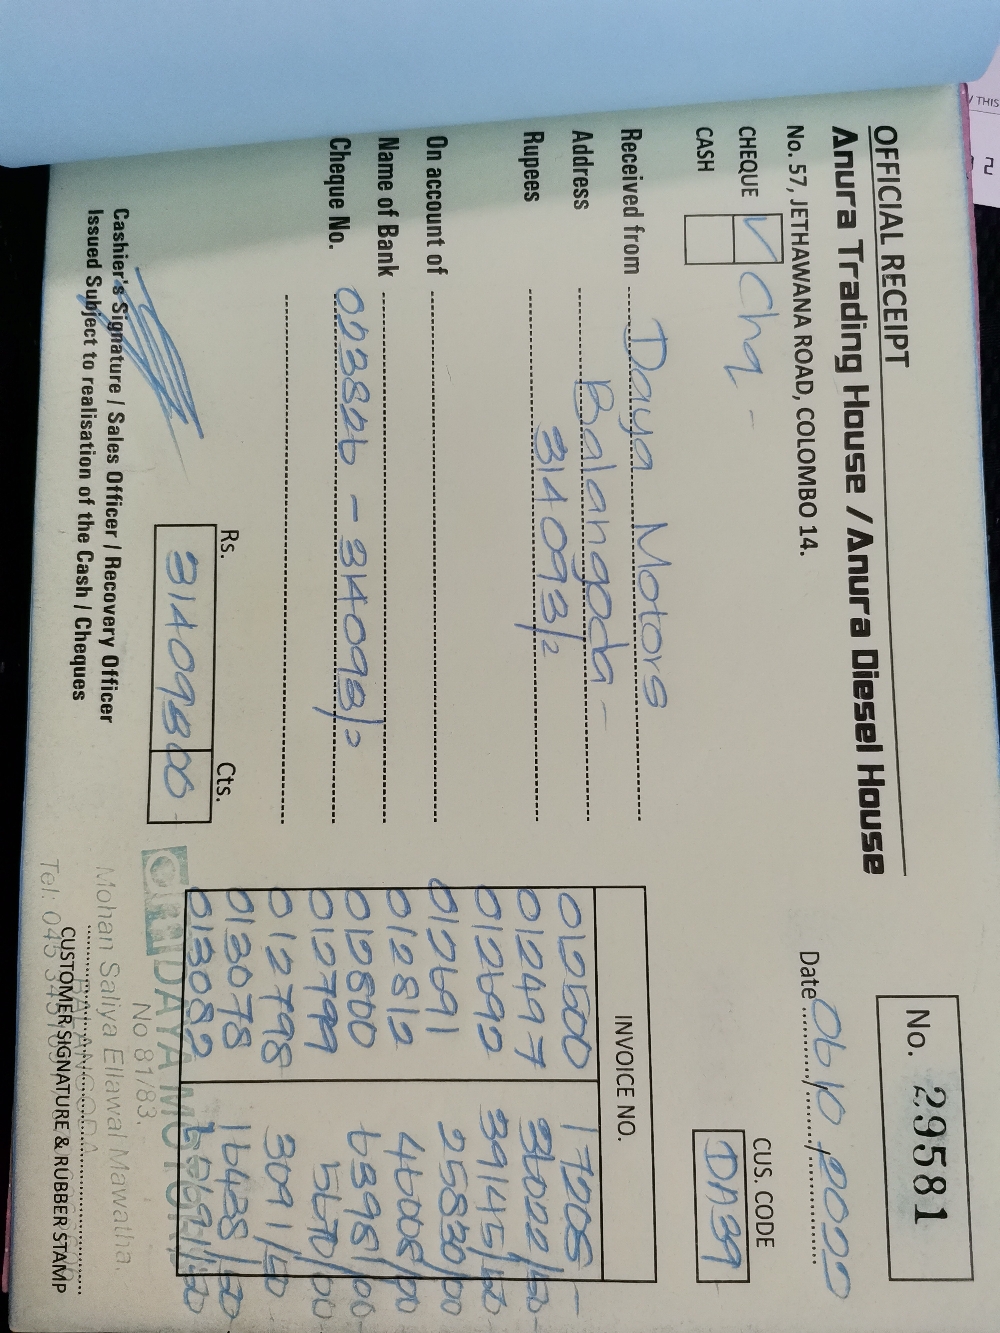 OFFICIAL RECEIPT
Anura Trading House / Anura Diesel House
No. 57, JETHAWANA ROAD, COLOMBO 14.
No. 29581
Date 06/10/2020
CHEQUE ✓ Chq -
CASH
CUS. CODE
DA39
Received from Daya Motors
Address Balangoda -
Rupees 314093/=
On account of
Name of Bank
Cheque No. 023826 - 314093/=
Rs. Cts.
314093 00
INVOICE NO.
012500 17205 -
012497
012692 39145/50
012691 25830/00
012812 46008/00
012800 6398/00
012799 5670/00
012798 3091/50
013078 16438/50
013082
Cashier's Signature / Sales Officer / Recovery Officer
Issued Subject to realisation of the Cash / Cheques
DAYA MOTORS
No 81/83.
Mohan Saliya Ellawal Mawatha.
BALANGODA
Tel: 045
CUSTOMER SIGNATURE & RUBBER STAMP